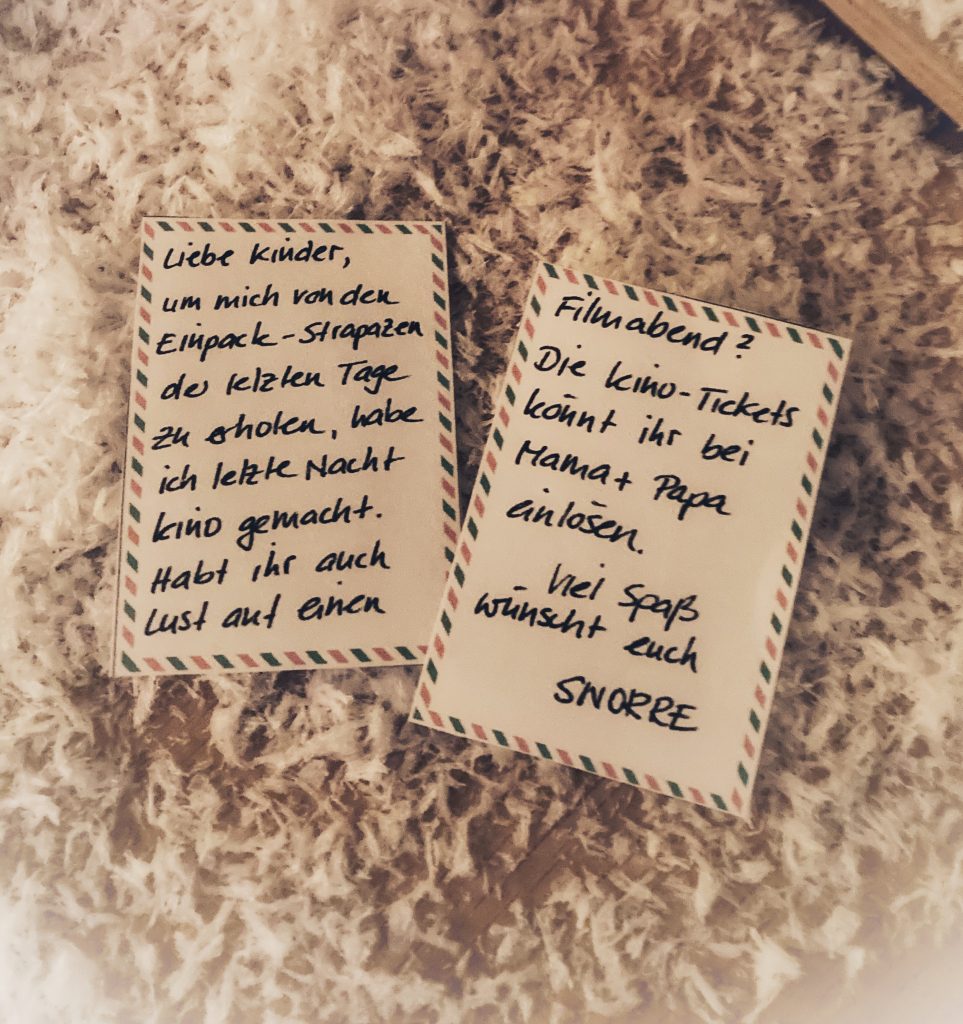 Liebe Kinder,
um mich von den
Einpack-Strapazen
der letzten Tage
zu erholen, habe
ich letzte Nacht
Kino gemacht.
Habt ihr auch
Lust auf einen
Filmabend?
Die Kino-Tickets
könnt ihr bei
Mama + Papa
einlösen.
Viel Spaß
wünscht euch
SNORRE